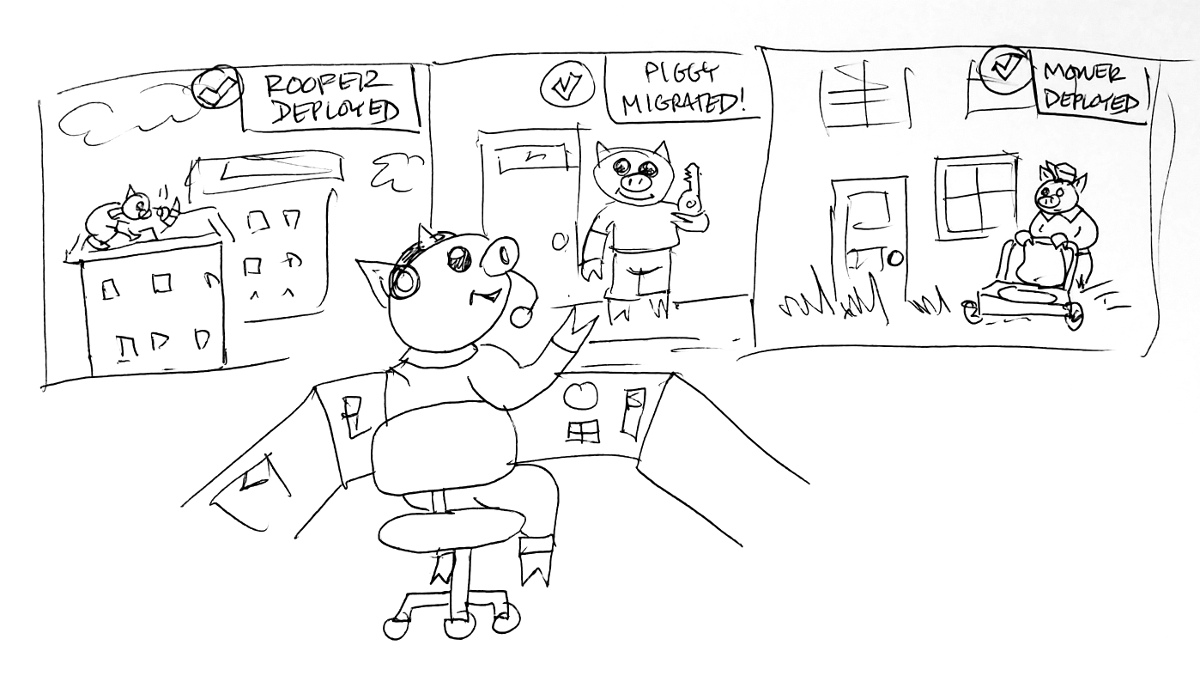 ROOFER
DEPLOYED
PIGGY
MIGRATED!
MOWER
DEPLOYED